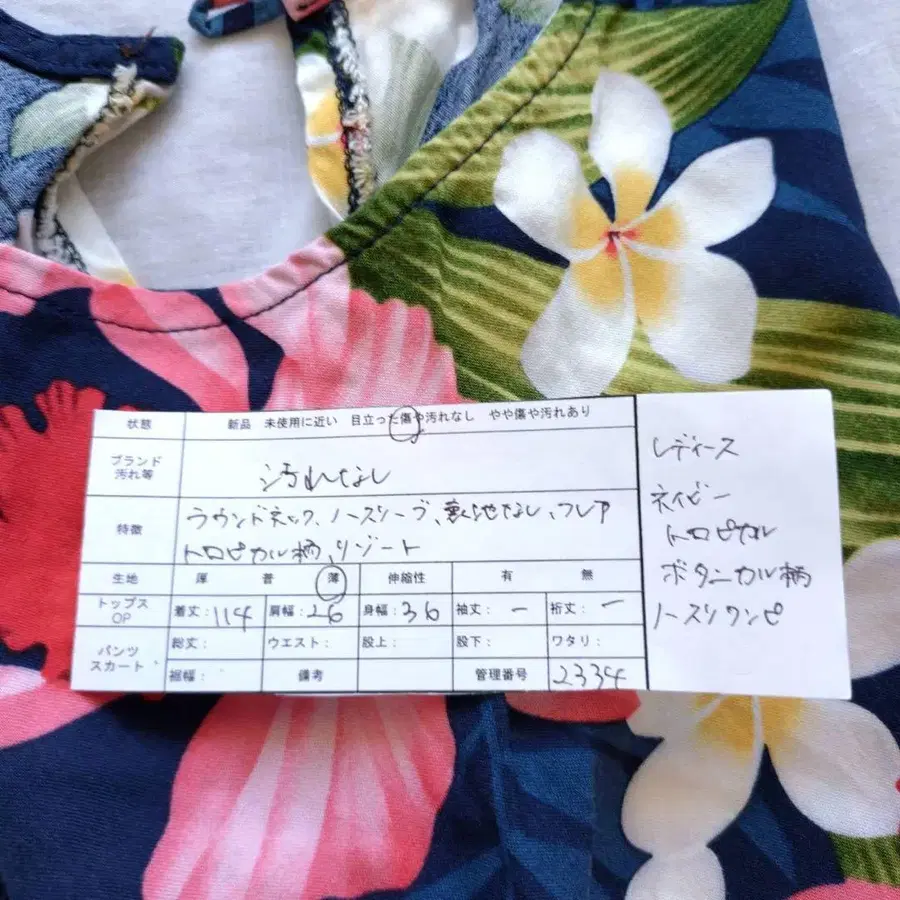 状態 新品 未使用に近い 目立った傷や汚れなし やや傷や汚れあり
ブランド
汚れ等 汚れなし
特徴 ラウンドネック、ノースリーブ、裏地なし、フレア
トロピカル柄、リゾート
生地 厚 普 薄 伸縮性 有 無
トップス
OP 着丈:114 肩幅:26 身幅:36 袖丈:ー 裄丈:ー
パンツ
スカート 総丈: ウエスト: 股上: 股下: ワタリ:
裾幅: 備考 管理番号 2334
レディース
ネイビー
トロピカル
ボタニカル柄
ノースリワンピ